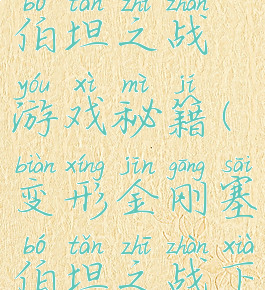 bó tǎn zhī zhàn
伯坦之战
yóu xì mì jí
游戏秘籍(
biàn xíng jīn gāng sāi
变形金刚塞
bó tǎn zhī zhàn xià
伯坦之战下